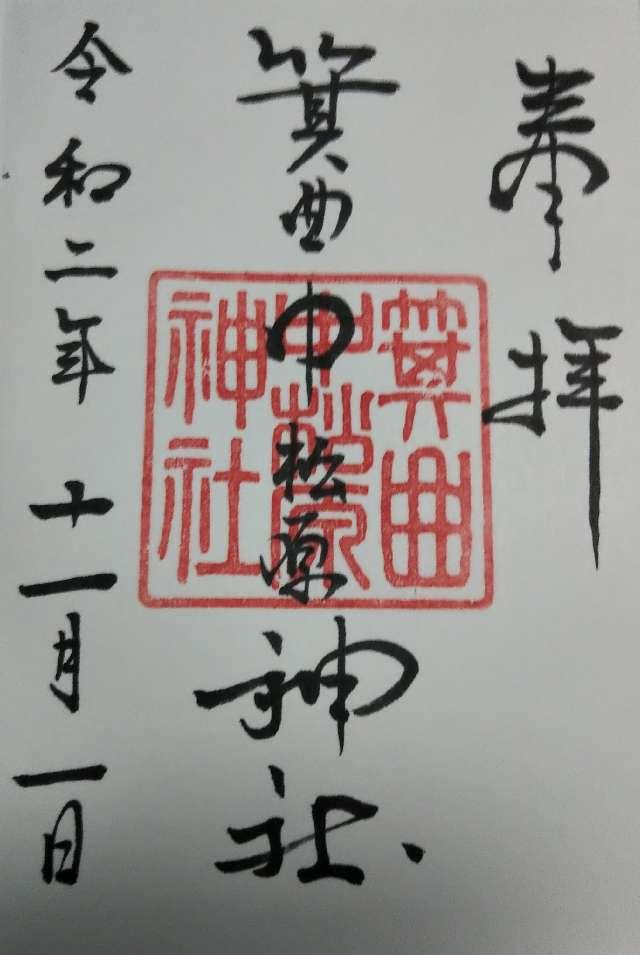 奉拝
箕曲中松原神社
箕曲中松原神社
令和二年十一月一日